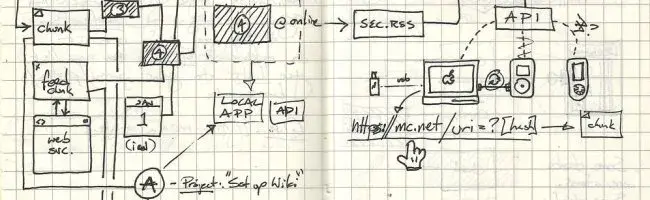 chunk
3
4
4
@online
SEC.RSS
API
?
feed
chunk
web
svc.
JAN
1
(ical)
LOCAL
APP
API
usb
mc.net/uri=?[hash]
chunk
A - Project: "Set up Wiki"